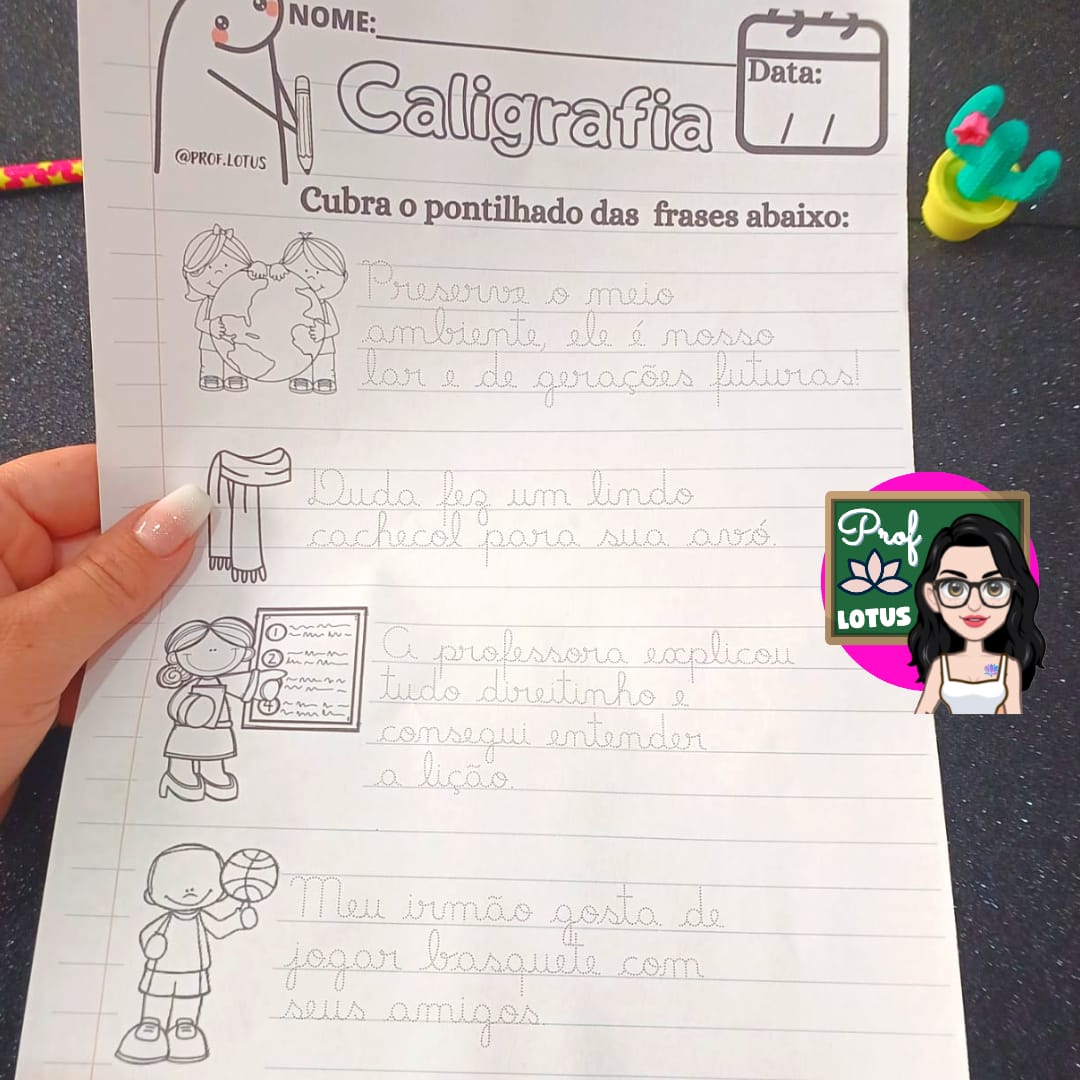 NOME:
Data:
/ /
Caligrafia
@PROF.LOTUS
Cubra o pontilhado das frases abaixo:
Preserve o meio
ambiente, ele é nosso
lar e de gerações futuras!
Duda fez um lindo
cachecol para sua avó.
Prof
LOTUS
1
2
4
A professora explicou
tudo direitinho e
consegui entender
a lição.
Meu irmão gosta de
jogar basquete com
seus amigos.